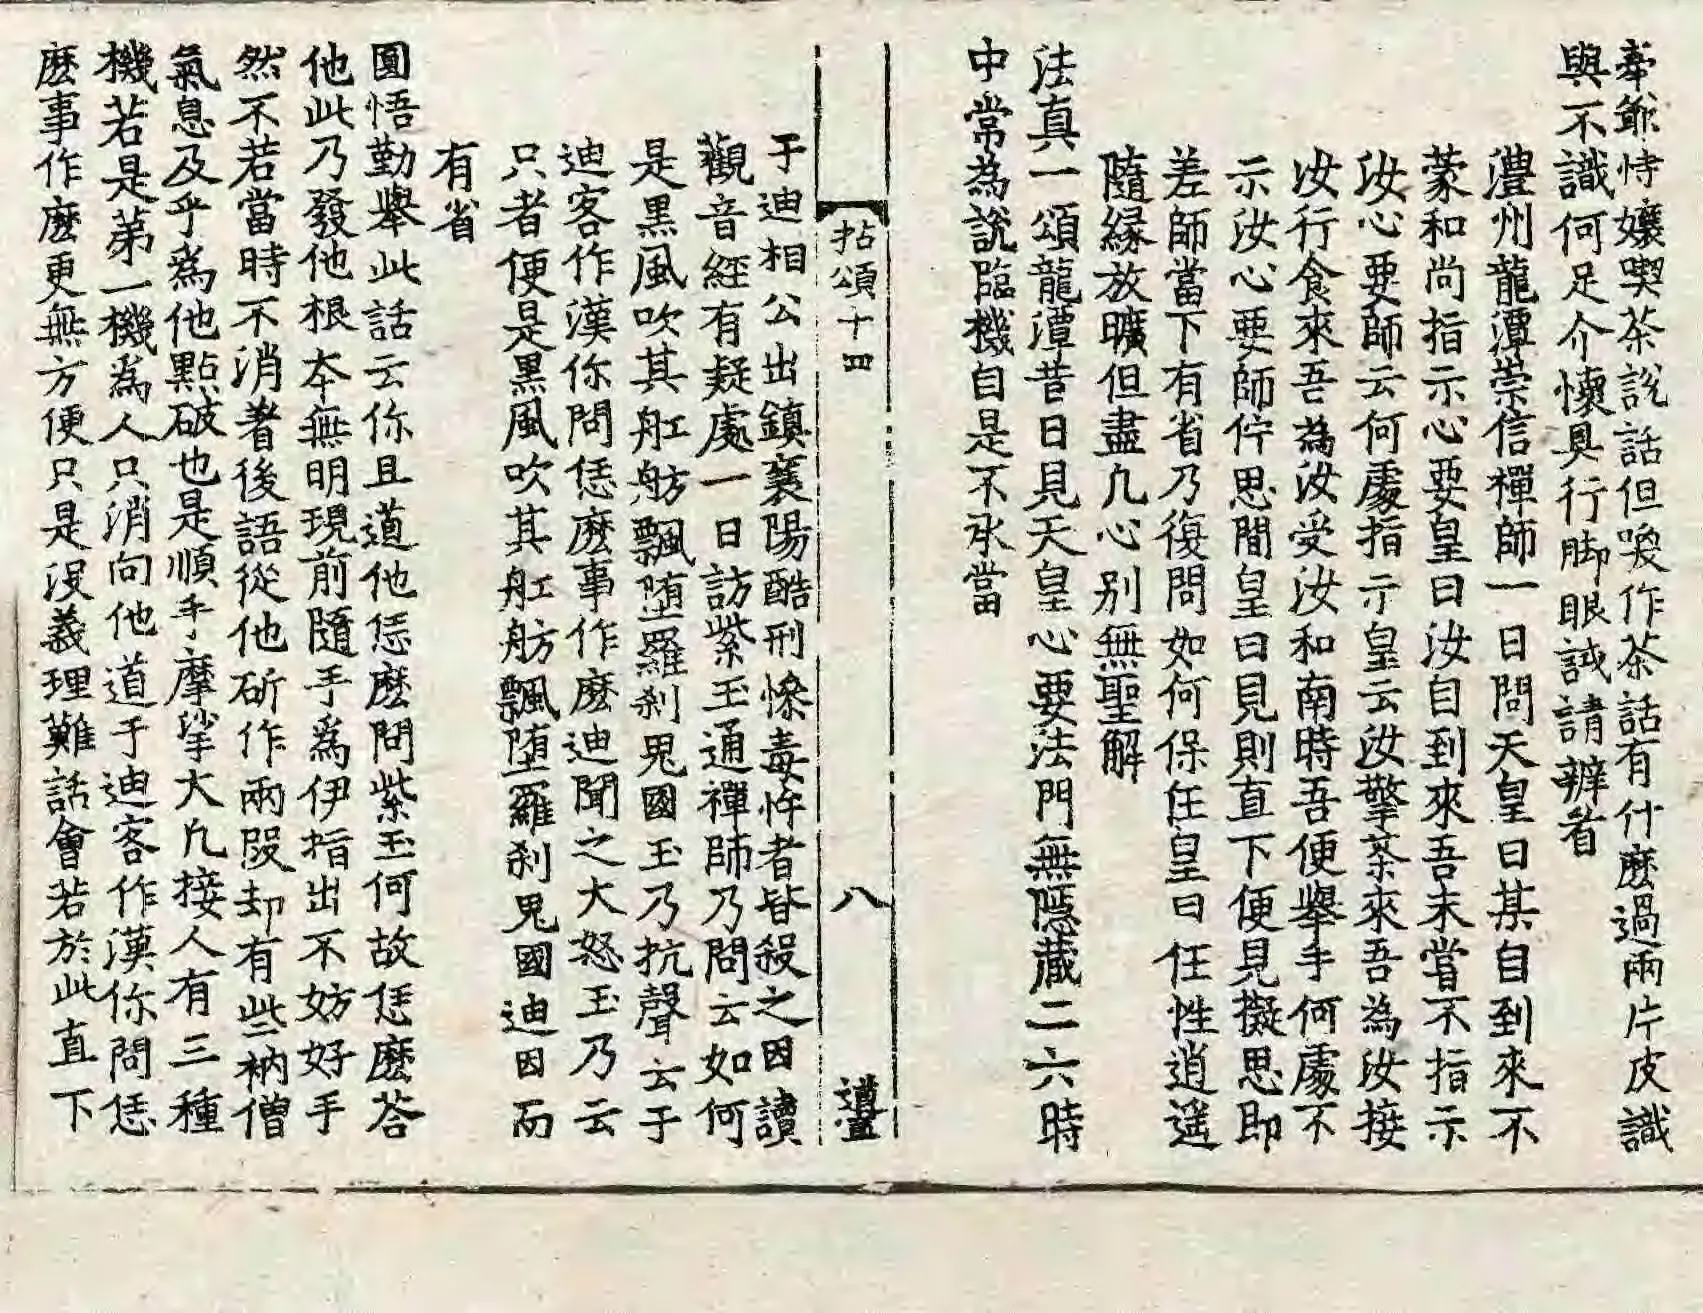 牽爺恃孃喫茶說話但喚作茶話有什麽過兩片皮識
與不識何足介懷具行脚眼試請辨看
澧州龍潭崇信禪師一日問天皇曰某自到來不
蒙和尚指示心要皇曰汝自到來吾未甞不指示
汝心要師云何處指示皇云汝擎茶來吾為汝接
汝行食來吾為汝受汝和南時吾便擧手何處不
示汝心要師佇思間皇曰見則直下便見擬思即
差師當下有省乃復問如何保任皇曰任性逍遥
隨緣放曠但盡凡心别無聖解
法真一頌龍潭昔日見天皇心要法門無隱藏二六時
中常為説臨機自是不承當
拈頌十四
八
于迪相公出鎮襄陽酷刑慘毒忤者皆殺之因讀
觀音經有疑處一日訪紫玉通禪師乃問云如何
是黑風吹其舡舫飄堕羅刹鬼國玉乃抗聲云于
迪客作漢你問恁麽事作麽迪聞之大怒玉乃云
只者便是黑風吹其舡舫飄堕羅刹鬼國迪因而
有省
圜悟勤擧此話云你且道他恁麽問紫玉何故恁麽荅
他此乃發他根本無明現前隨手爲伊指出不妨好手
然不若當時不消著後語從他斫作兩段却有些衲僧
氣息及乎爲他點破也是順手摩挲大凡接人有三種
機若是第一機為人只消向他道于迪客作漢你問恁
麽事作麽更無方便只是没義理難話會若於此直下